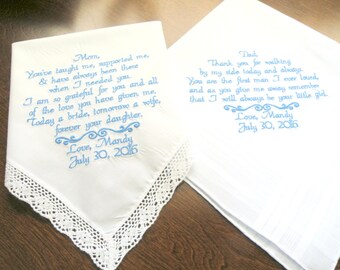 Mom,
You've taught me, supported me,
& have always been there
when I needed you.
I am so grateful for you and all
of the love you have given me.
Today a bride, tomorrow a wife,
forever your daughter.
Love, Mandy
July 30, 2016
Dad,
Thank you for walking
by my side today and always.
You are the first man I ever loved,
and as you give me away remember
that I will always be your little girl.
Love, Mandy
July 30, 2016